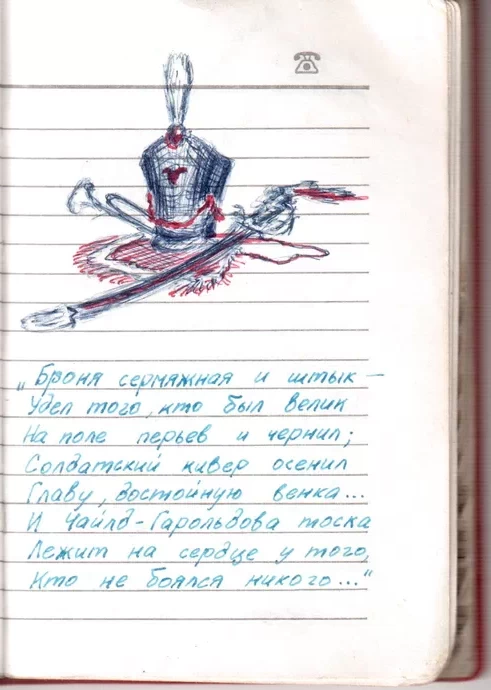 „Броня сермяжная и штык —
Удел того, кто был велик
На поле перьев и чернил;
Солдатский кивер осенил
Главу, достойную венка...
И Чайлд-Гарольдова тоска
Лежит на сердце у того,
Кто не боялся никого..."